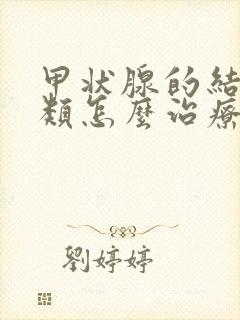 甲状腺的結
類怎麼治療
劉婷婷